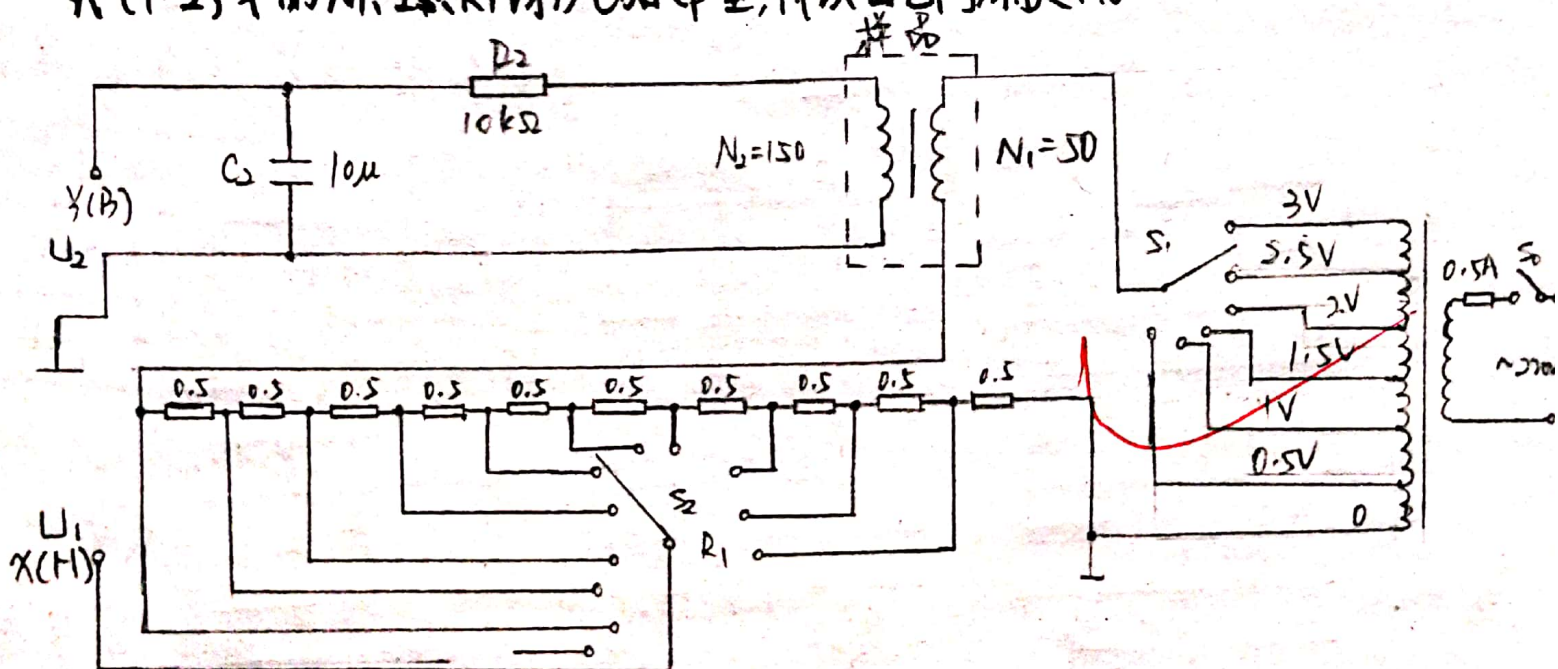 样品
R2
10kΩ
C2
10μ
N2=150
N1=50
Y(B)
U2
S1
3V
5.5V
2V
1.5V
1V
0.5V
0
0.5A
S0
0.5
0.5
0.5
0.5
0.5
0.5
0.5
0.5
0.5
0.5
S2
R1
U1
X(H)